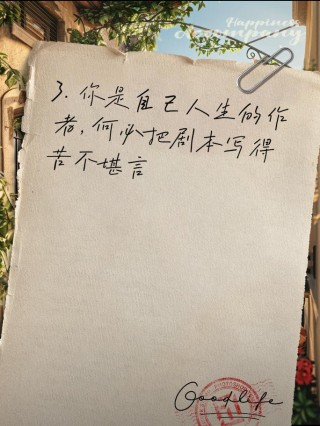 Happiness
Accompany
3. 你是自己人生的作
者，何必把剧本写得
苦不堪言
Goodlife